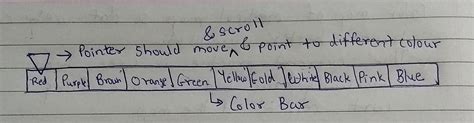 & scroll
→ Pointer should move & point to different colour
Red Purple Brown Orange Green Yellow Gold White Black Pink Blue
↳ Color Bar